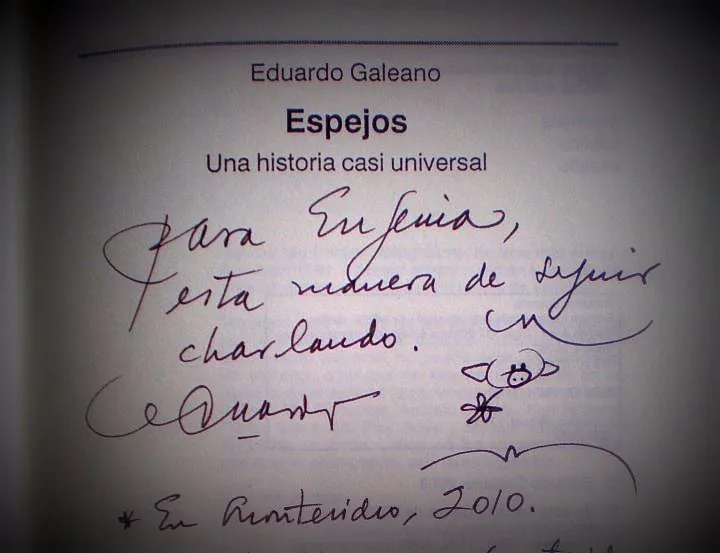 Eduardo Galeano
Espejos
Una historia casi universal
para Eugenia,
esta manera de seguir
charlando.
eduardo
* En Montevideo, 2010.